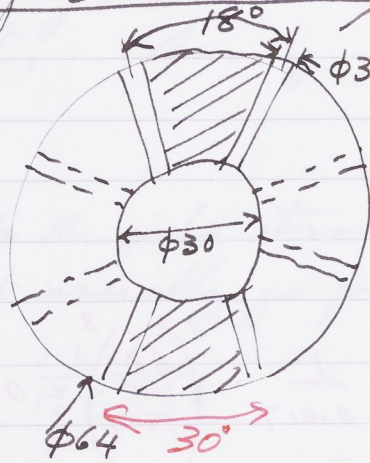 18°
φ3
φ30
φ64
30°